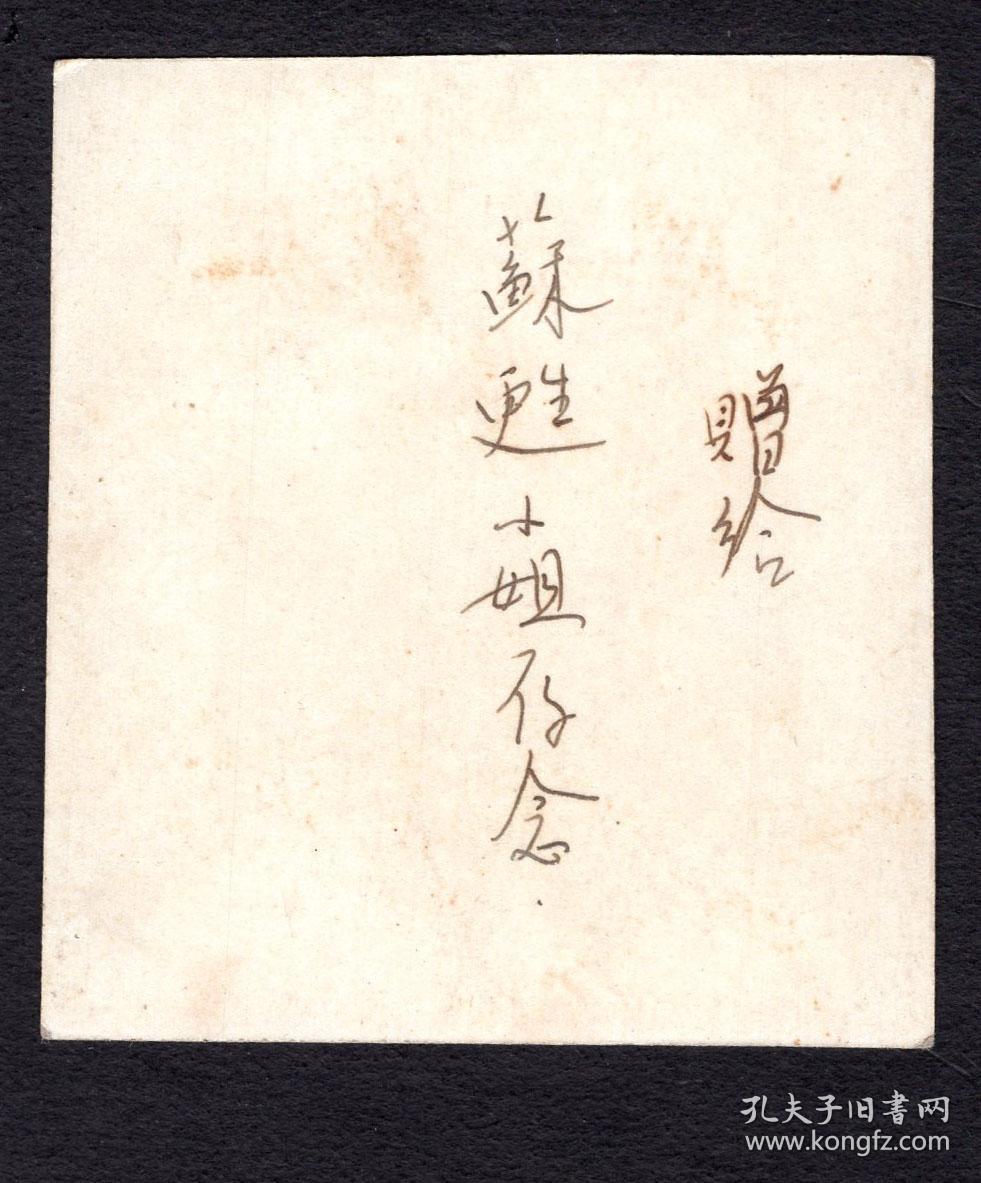 贈给
蘇甦小姐存念.
孔夫子旧書网
www.kongfz.com